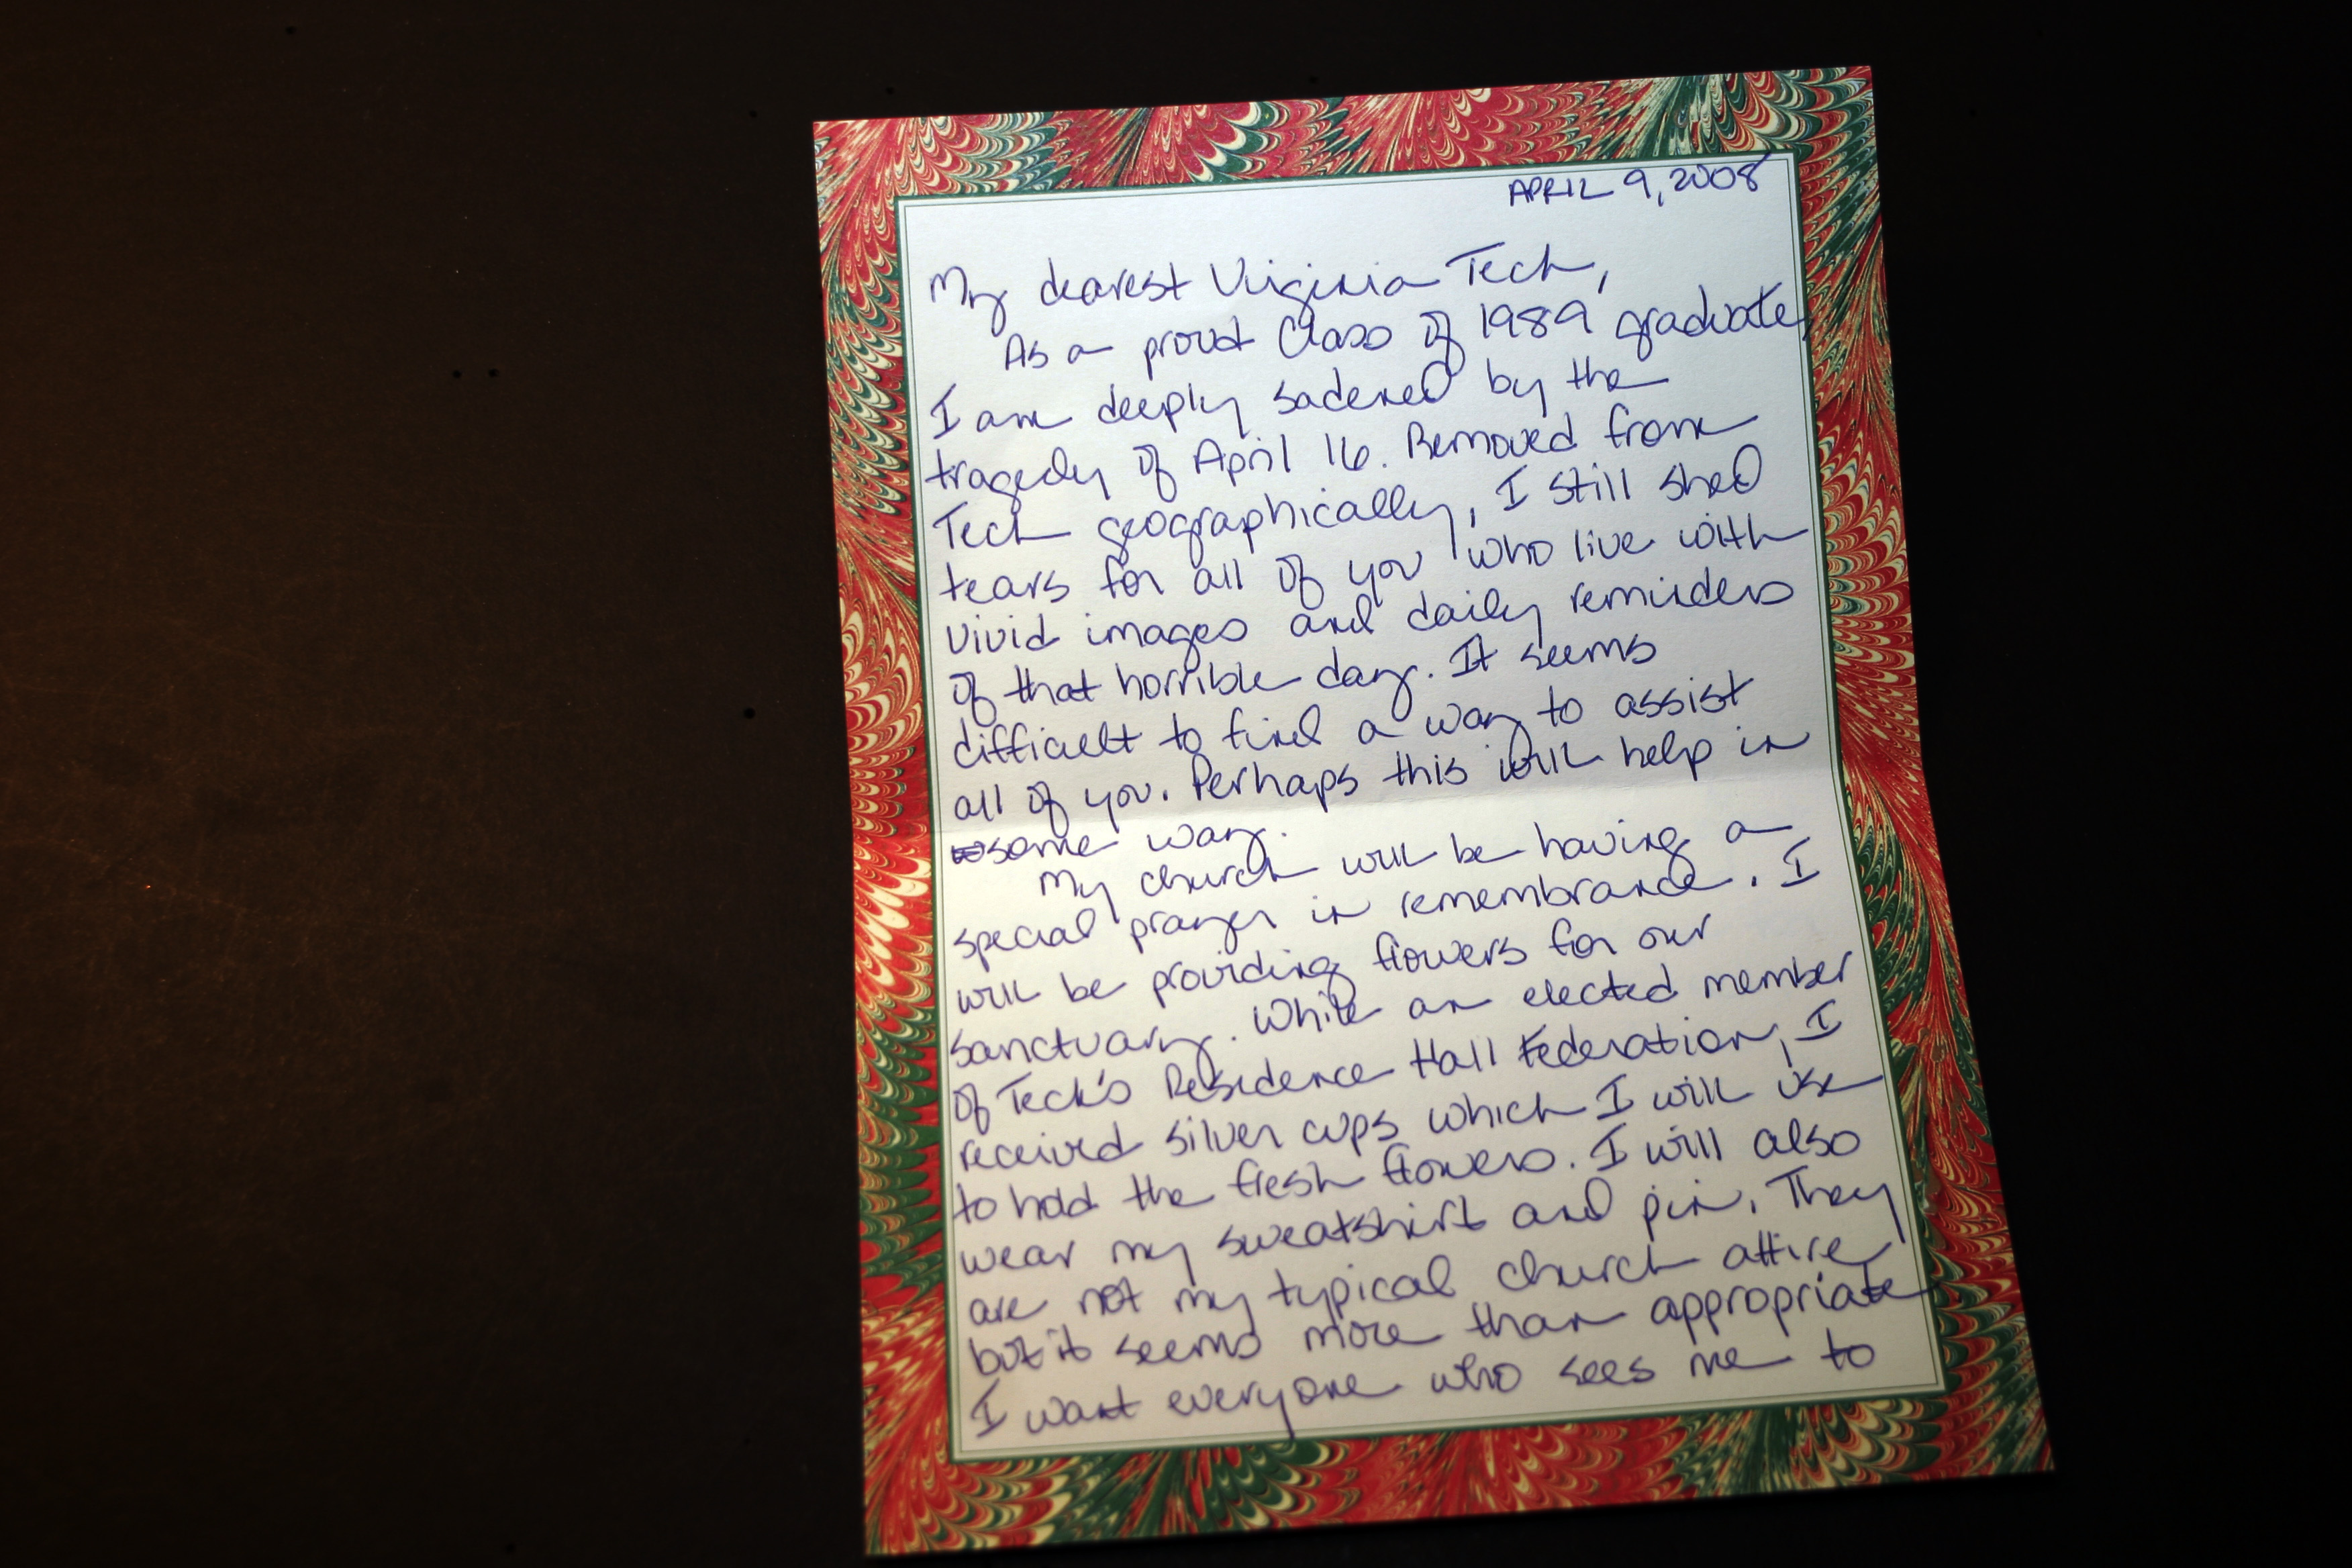 APRIL 9, 2008
My dearest Virginia Tech,
As a proud Class of 1989 graduate,
I am deeply sadened by the
tragedy of April 16. Removed from
Tech geographically, I still shed
tears for all of you who live with
vivid images and daily reminders
of that horrible day. It seems
difficult to find a way to assist
all of you. Perhaps this will help in
some way.
My church will be having a
special prayer in remembrance. I
will be providing flowers for our
sanctuary. While an elected member
of Tech's Residence Hall Federation, I
received silver cups which I will use
to hold the fresh flowers. I will also
wear my sweatshirt and pin. They
are not my typical church attire
but it seems more than appropriate.
I want everyone who sees me to